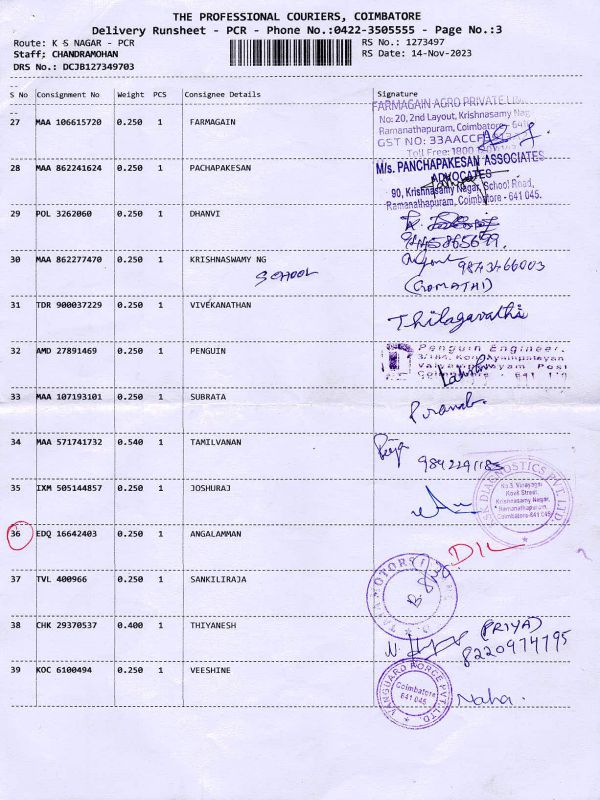 THE PROFESSIONAL COURIERS, COIMBATORE
Delivery Runsheet - PCR - Phone No.:0422-3505555 - Page No.:3
Route: K S NAGAR - PCR
RS No.: 1273497
Staff; CHANDRAMOHAN
RS Date: 14-Nov-2023
DRS No.: DCJB127349703
S No Consignment No Weight PCS Consignee Details Signature
27 MAA 106615720 0.250 1 FARMAGAIN
FARMAGAIN AGRO PRIVATE
No: 20, 2nd Layout, Krishnasamy
Ramanathapuram, Coimbatore
GST NO:
Toll Free: 1800
28 MAA 862241624 0.250 1 PACHAPAKESAN
M/s. PANCHAPAKESAN ASSOCIATES
ADVOCATES
90, Krishnasamy Nagar, School Road,
Ramanathapuram, Coimbatore - 641 045.
29 POL 3262060 0.250 1 DHANVI
30 MAA 862277470 0.250 1 KRISHNASWAMY NG
SCHOOL
9843466003
(GOMATHI)
31 TDR 900037229 0.250 1 VIVEKANATHAN
Thilagavathi
32 AMD 27891469 0.250 1 PENGUIN
Penguin Engineer
33 MAA 107193101 0.250 1 SUBRATA
34 MAA 571741732 0.540 1 TAMILVANAN
35 IXM 505144857 0.250 1 JOSHURAJ
SK DIAGNOSTICS PVT. LTD.
No.3, Vinayagar
Kovil Street,
Krishnasamy Nagar,
Ramanathapuram,
Coimbatore-641 045
36 EDQ 16642403 0.250 1 ANGALAMMAN
37 TVL 400966 0.250 1 SANKILIRAJA
MOTORS
38 CHK 29370537 0.400 1 THIYANESH
(PRIYA)
8220974795
39 KOC 6100494 0.250 1 VEESHINE
VANGUARD FORCE PVT. LTD.
Coimbatore
641 045
Naha.